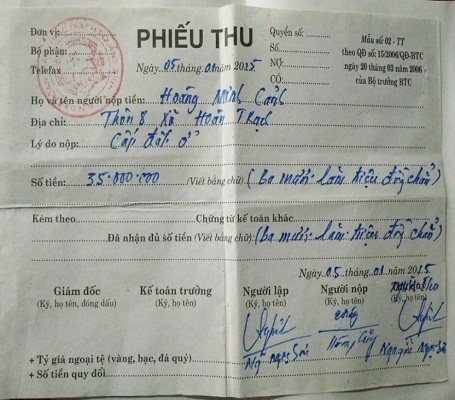 Đơn vị:
Bộ phận:
Telefax
PHIẾU THU
Ngày 05 tháng 01 năm 2015
Quyển số:
Số
NỢ
CÓ
Mẫu số: 02 - TT
theo QĐ số: 15/2006/QĐ-BTC
ngày 20 tháng 03 năm 2006
của Bộ trưởng BTC
Họ và tên người nộp tiền: Hoàng Minh Cảnh
Địa chỉ: Thôn 8 Xã Hoàn Trạch
Lý do nộp: Cấp đất ở
Số tiền: 35.000.000 (Viết bằng chữ) (Ba mươi lăm triệu đồng chẵn)
Kèm theo Chứng từ kế toán khác
Đã nhận đủ số tiền (Viết bằng chữ): (Ba mươi lăm triệu đồng chẵn)
Ngày 05 tháng 01 năm 2015
Giám đốc
(Ký, họ tên, đóng dấu)
Kế toán trưởng
(Ký, họ tên)
Người lập
(Ký, họ tên)
Người nộp
(Ký, họ tên)
+ Tỷ giá ngoại tệ (vàng, bạc, đá quý)
+ Số tiền quy đổi